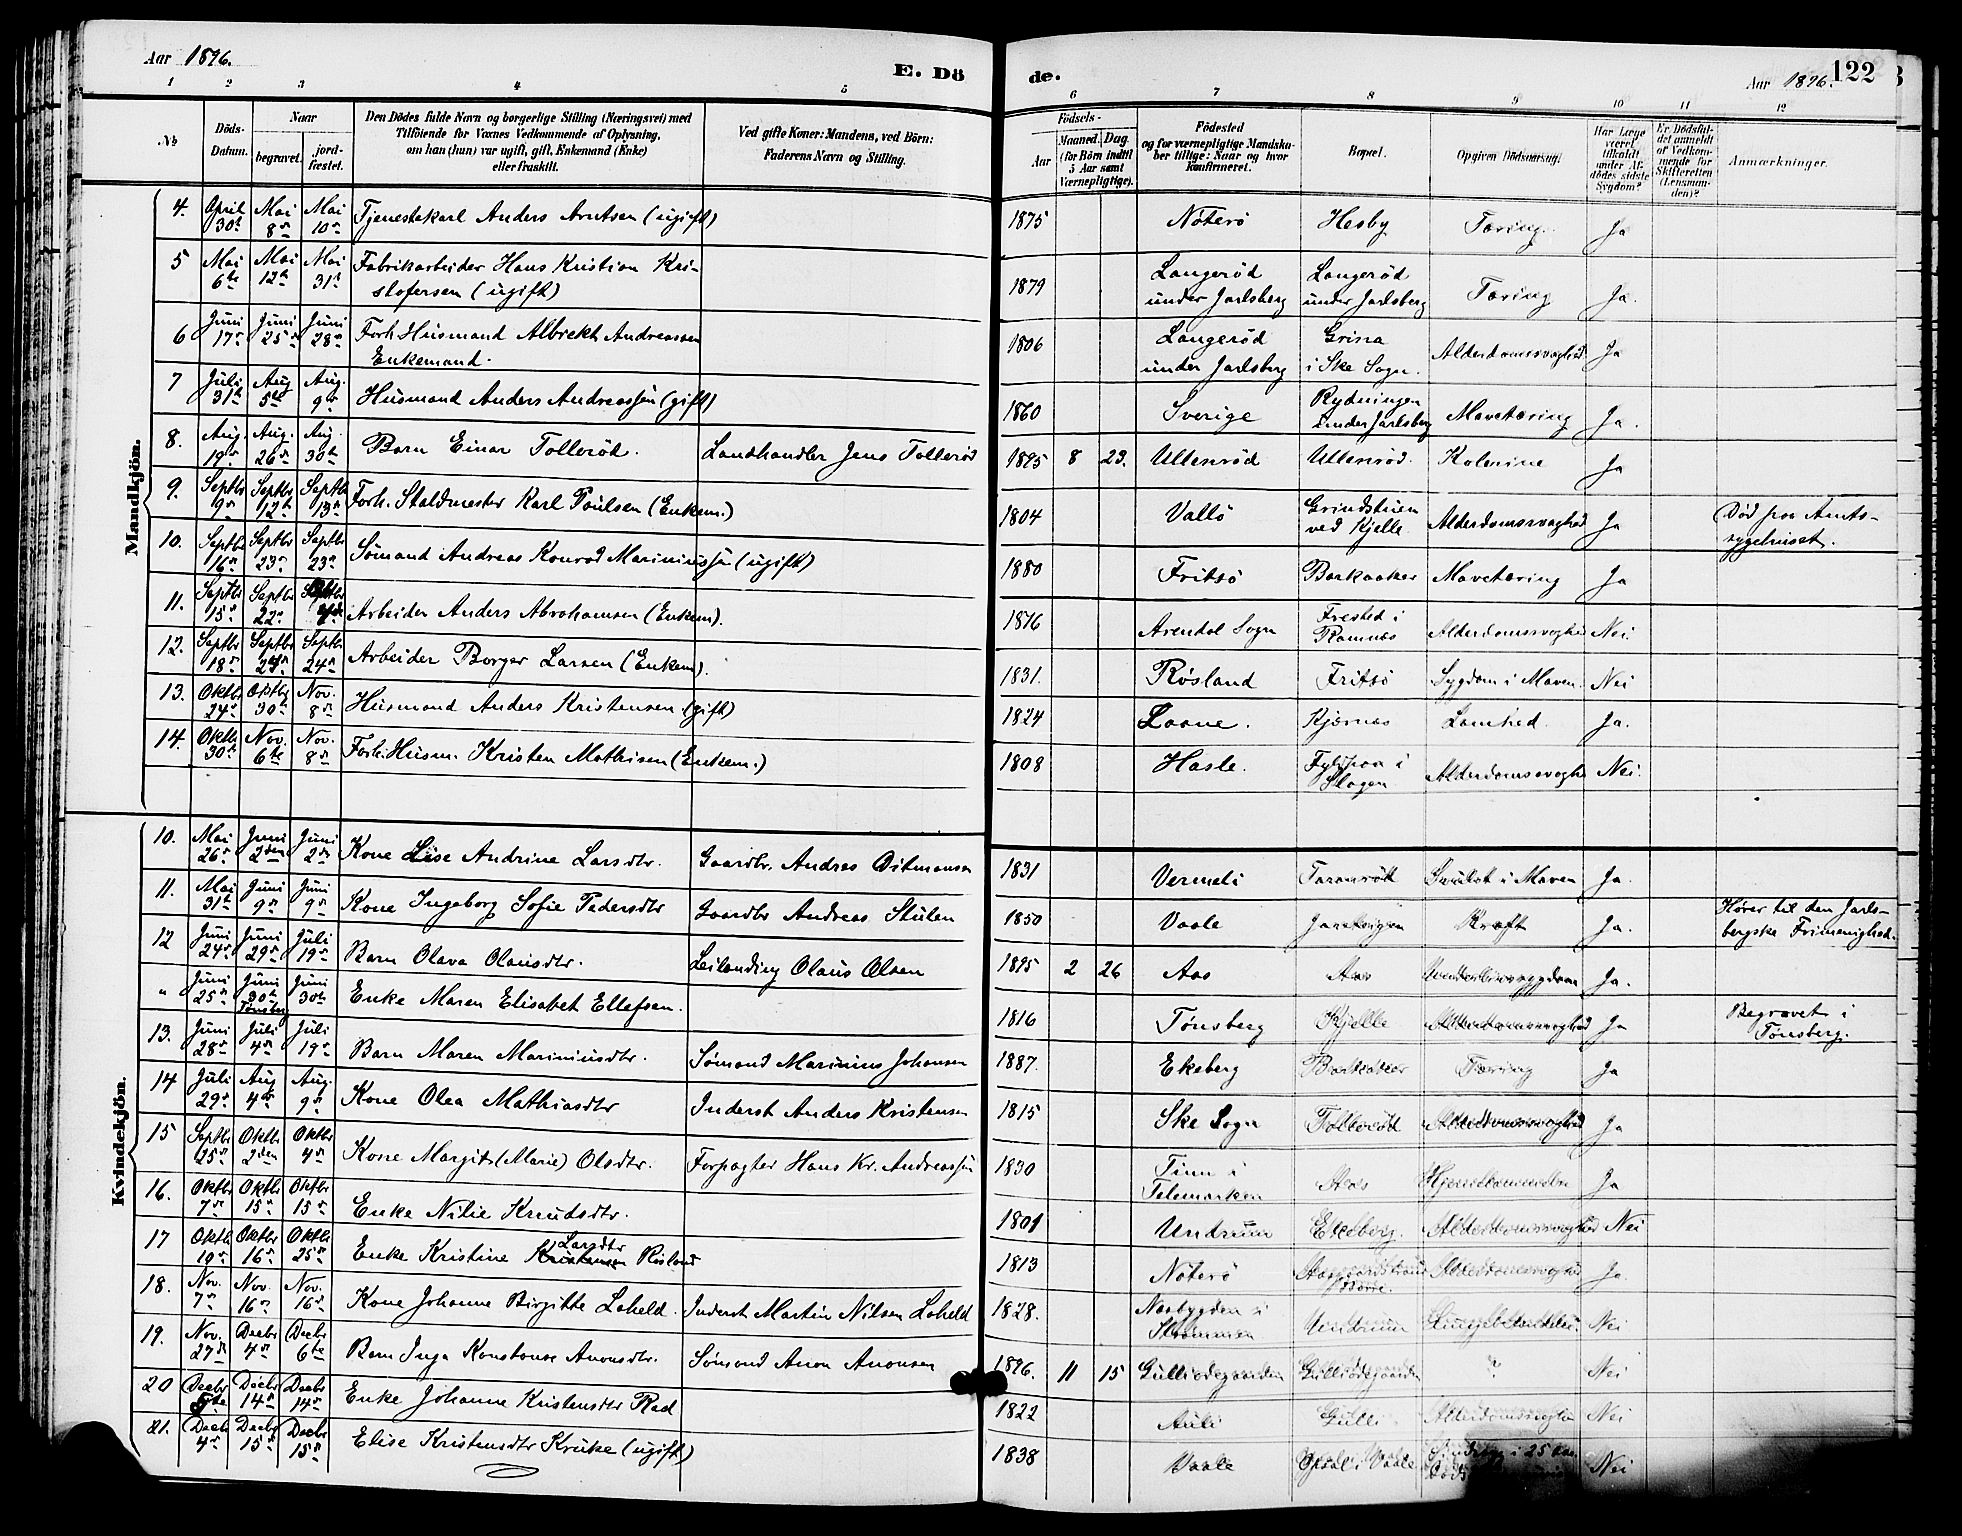 Aar 1896.
E. Dö
de.
Aar 1896.
122
1 2 3 4 5 6 7 8 9 10 11 12
No
Döds-Datum.
Naar
begravet.
jord-fæstet.
Den Dödes fulde Navn og borgerlige Stilling (Næringsvei) med
Tilföiende for Voxnes Vedkommende af Oplysning,
om han (hun) var ugift, gift, Enkemand (Enke)
eller fraskilt.
Ved gifte Koner: Mandens, ved Börn:
Faderens Navn og Stilling.
Födsels-
Aar
Maaned. Dag.
(for Börn indtil
5 Aar samt
Værnepligtige).
Födested
og for værnepligtige Mandska-
ber tillige: Naar og hvor
konfirmeret.
Bopæl.
Opgiven Dödsaarsag.
Har Læge
været
tilkaldt
under Af-
dödes sidste
Sygdom?
Er Dödsfal-
det anmeldt
af Vedkom-
mende for
Skifteretten
(Lensman-
den)?
Anmærkninger.
Mandkjön.
4. April 30te Mai 8de Mai 10de Tjenestekarl Anders Arntsen (ugift) 1875 Nøterø Hesby Tæring. Ja
5 Mai 6te Mai 12te Mai 31te Fabrikarbeider Hans Kristian Kri-
stofersen (ugift) 1879 Langerød under Jarlsberg Langerød under Jarlsberg Tæring Ja.
6 Juni 17de Juni 25de Juni 28de Forh. Husmand Albrekt Andreassen
Enkemand. 1806 Langerød under Jarlsberg i Ske Sogn. Alderdomssvaghed Ja
7 Juli 31te Aug 5te Aug. 9de Husmand Anders Andreassen (gift) 1860 Sverige Rydningen under Jarlsberg Mavetæring Ja.
8. Aug. 19de Aug. 26de Aug. 30te Barn Einar Tollerød. Landhandler Jens Tollerød 1895 8 23. Ullenrød Ullenrød. Kolerine Ja
9. Septbr 9de Septbr 12te Septbr 13de Forh. Staldmester Karl Poulsen (Enkem.) 1804 Vallø Grindstuen ved Kjelle Alderdomssvaghed Ja Død paa Amts-
sygehuset.
10. Septbr 16de Septbr 23de Septbr 23de Sømand Andreas Konrad Mariniussen (ugift) 1880 Fritsø Barkaaker Mavetæring Ja
11. Septbr 15de Septbr 22de Septbr Arbeider Anders Abrahamsen (Enkem). 1816 Arendal Sogn Frested i Ramnes Alderdomssvaghed Nei
12. Septbr 18de Septbr 24de Septbr 24de Arbeider Borger Larsen (Enkem). 1831. Røsland Fritsø Sygdom i Maven. Nei
13. Oktbr 24de Oktbr 30te Nov. 8de Husmand Anders Kristensen (gift) 1824 Laane. Kjærnæs Lamhed. Ja.
14. Oktbr 30te Nov. 6te Nov. 8de Forh. Husm. Kristen Mathisen (Enkem.) 1808 Hasle. i Slagen Alderdomssvaghed Nei.
Kvindekjön.
10. Mai 26de Juni 2den Juni 2den Kone Lise Andrine Larsdtr. Gaardbr. Andreas Ditmansen 1831 Vermeli Taranrød Svulst i Maven Ja.
11. Mai 31te Juni 9de Juni 9de Kone Ingeborg Sofie Pedersdtr Gaardbr Andreas Stulen 1850 Vaale Jareteigen Kræft Ja. Hører til den Jarls-
bergske Frimenighed.
12 Juni 24de Juni 29de Juli 19de Barn Olava Olausdtr. Leilænding Olaus Olsen 1895 2 26 Aas Aas Underlivssygdom Ja.
" Juni 25de Juni 30te Tønsberg Juni 30te Enke Maren Elisabet Ellefsen. 1816 Tønsberg Kjelle Alderdomssvaghed Ja Begravet i
Tønsberg.
13. Juni 28de Juli 4de Juli 19de Barn Maren Mariniusdtr. Sømand Marinius Johansen 1887. Ekeberg Barkaaker Tæring Ja
14 Juli 29de Aug 4de Aug. 9de Kone Olea Mathiasdtr Inderst Anders Kristensen 1815 Ske Sogn Tollerød Alderdomssvaghed Ja
15 Septbr 25de Oktbr 2den Oktbr 4de Kone Margit (Marie) Olsdtr. Forpagter Hans Kr. Andreassen 1830 Tinn i Telemarken Aas Hjernebetændelse Ja
16. Oktbr 7de Oktbr 15de Oktbr 15de Enke Nilie Knudsdtr. 1801 Undrum Ekeberg. Alderdomssvaghed Nei
17 Oktbr 10de Oktbr 16de Oktbr 25de Enke Kristine Larsdtr Røsland 1813 Nøterø Aasgaardstrand i Borre. Alderdomssvaghed Ja.
18. Nov. 7de Nov. 16de Nov. 16de Kone Johanne Birgitte Loheld. Inderst Martin Nilsen Loheld 1828. Næsbygden i Strømmen Undrum Lungebetændelse. Nei
19. Nov. 27de Decbr 4de Decbr 6te Barn Inga Konstanse Aronsdtr. Sømand Aron Aronsen 1896. 11 15 Gulliødegaarden Gulliødegaarden ? Nei
20 Decbr 5te Decbr 14de Decbr 14de Enke Johanne Kristensdtr Rød 1822 Auli Gulli Alderdomssvaghed Nei
21. Decbr 4de Decbr 15de Decbr 15de Elise Kristensdtr Kruke (ugift) 1838 Vaale Opsal i Vaale i 25 Aar Nei